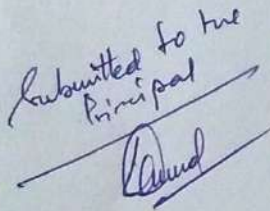 Submitted to the
Principal